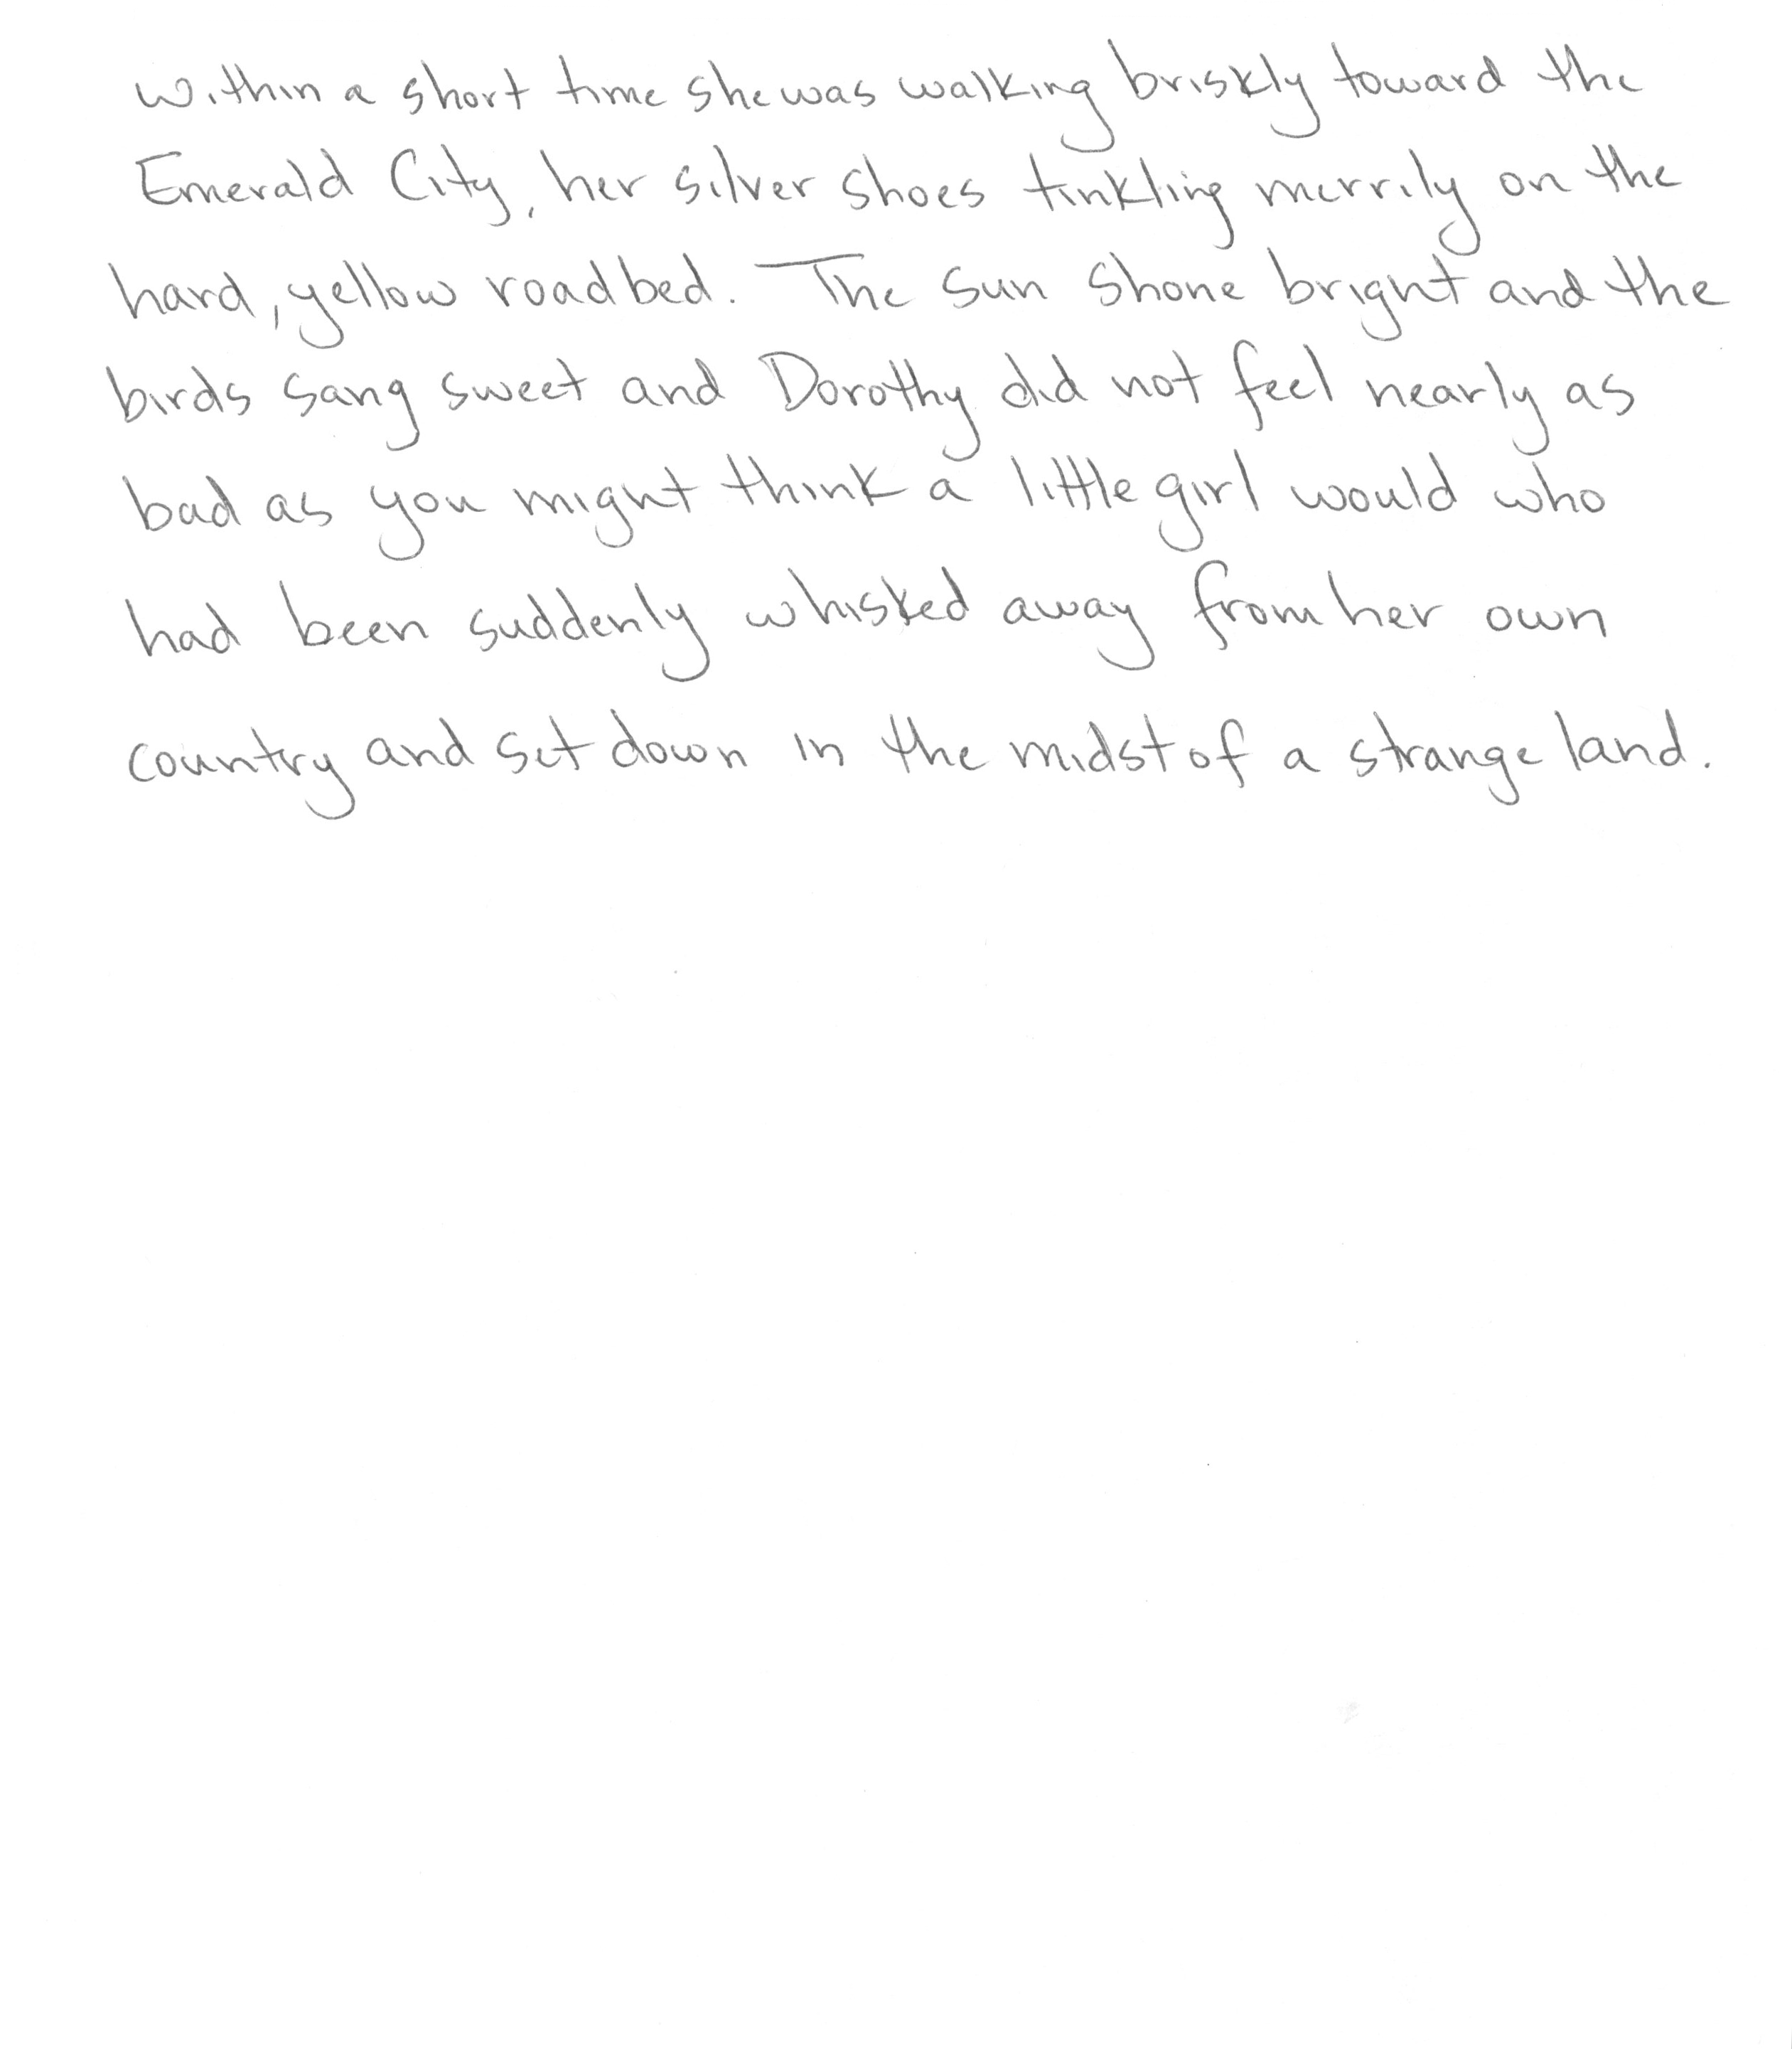 Within a short time she was walking briskly toward the
Emerald City, her silver shoes tinkling merrily on the
hard, yellow roadbed. The sun shone bright and the
birds sang sweet and Dorothy did not feel nearly as
bad as you might think a little girl would who
had been suddenly whisked away from her own
country and set down in the midst of a strange land.